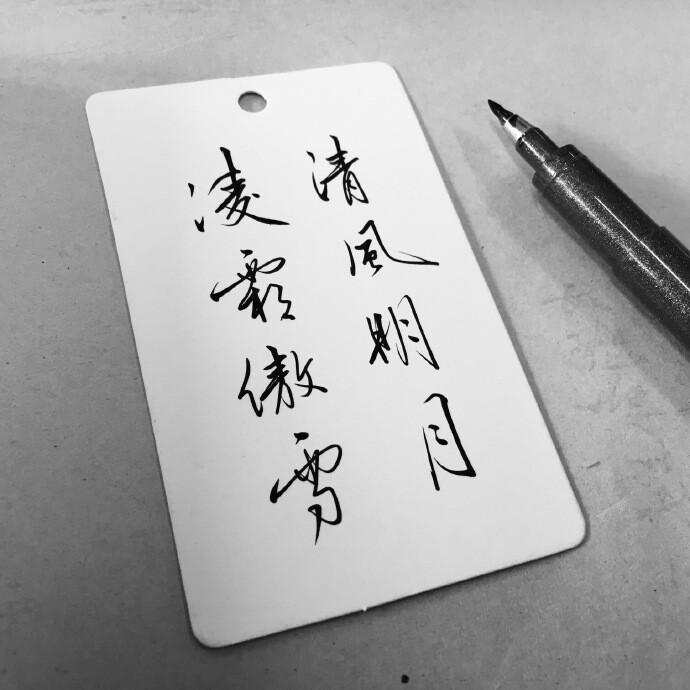 清風明月
凌霜傲雪